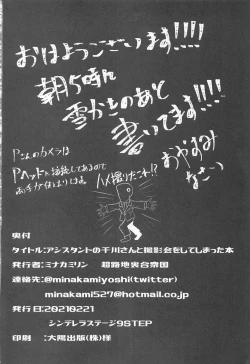 おはようございます!!!!
朝5時に
このあとがき
書いてます!!!!
おやすみ
なさーい
Pさんのカメラは
Pヘッドに接続してあるので
ハメ撮りだこれ!?
奥付
タイトル:アシスタントの千川さんと撮影会をしてしまった本
発行者:ミナカミリン 超路地裏台衆国
連絡先:@minakamiyoshi(twitter)
minakami527@hotmail.co.jp
発行日:20210221
シンデレラステージ9STEP
印刷 :大陽出版(株)様